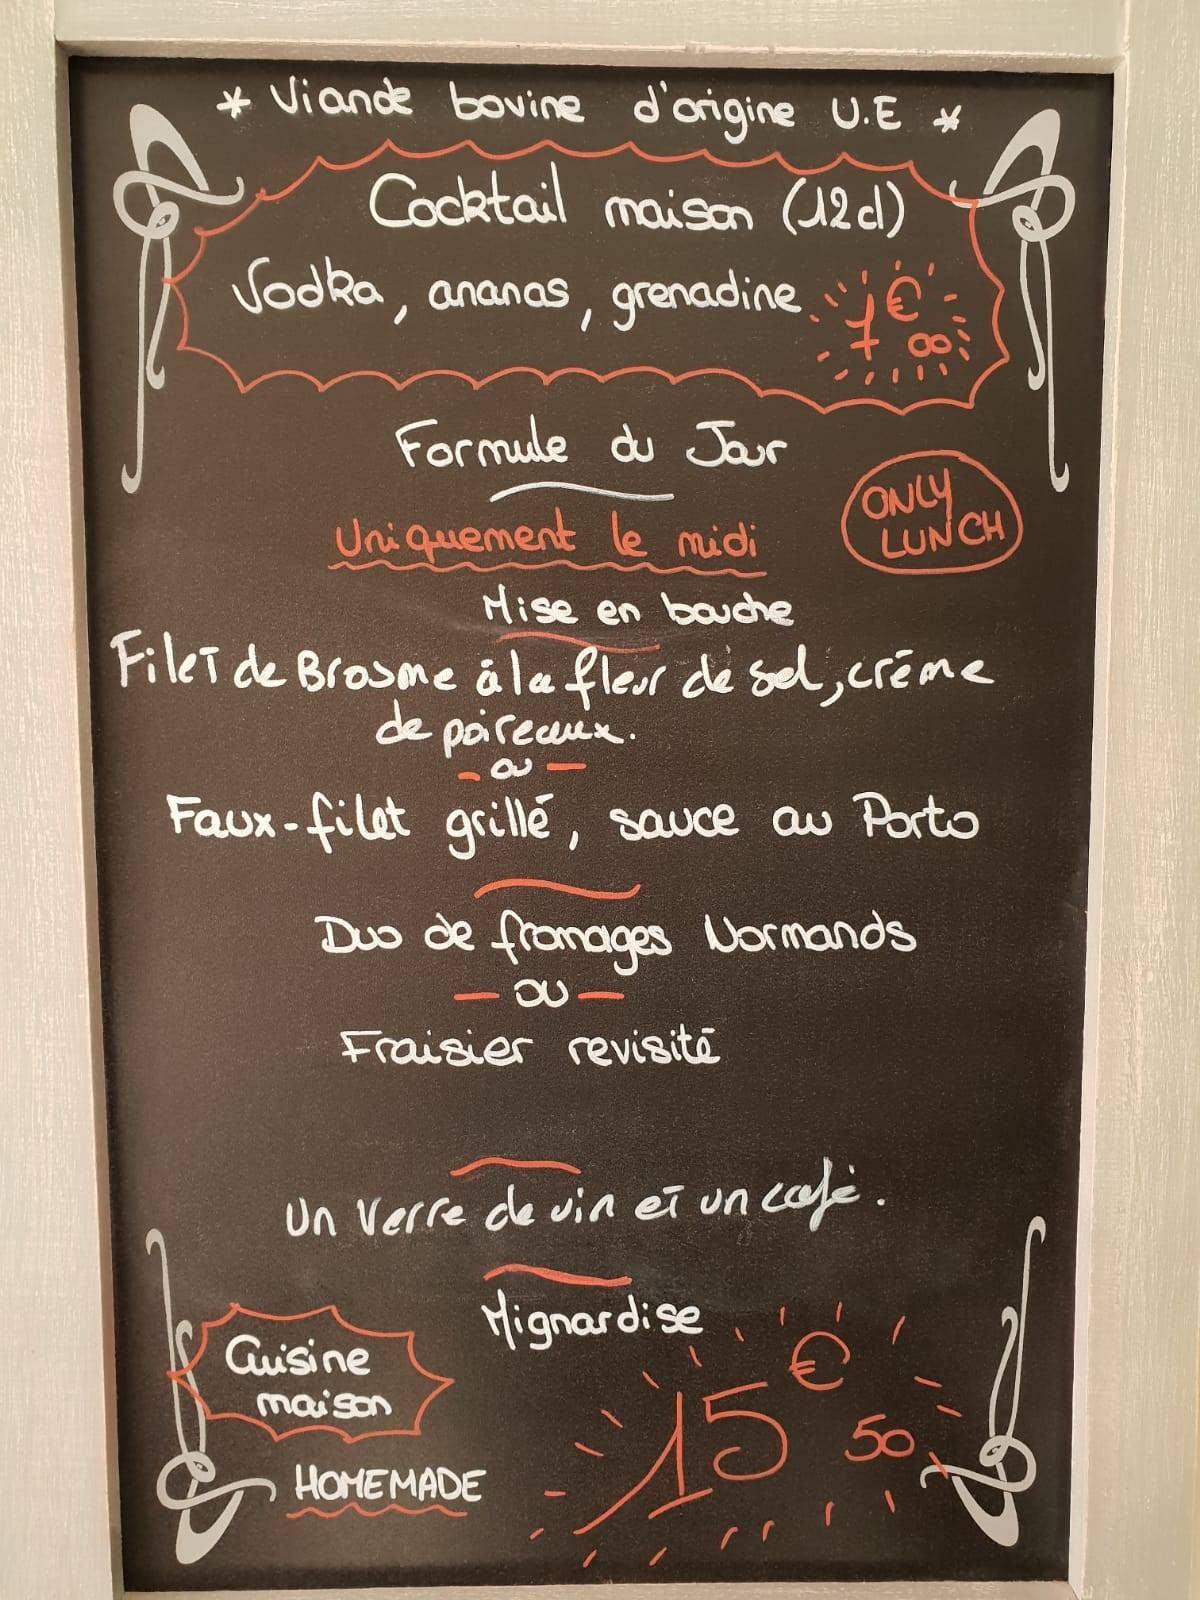 * Viande bovine d'origine U.E *
Cocktail maison (12cl)
Vodka, ananas, grenadine
7€00
Formule du Jour
Uniquement le midi
ONLY
LUNCH
Mise en bouche
Filet de Brosme à la fleur de sel, crème
de poireaux.
- ou -
Faux-filet grillé, sauce au Porto
Duo de fromages Normands
- ou -
Fraisier revisité
Un verre de vin et un café.
Mignardise
Cuisine
maison
HOMEMADE
15€50